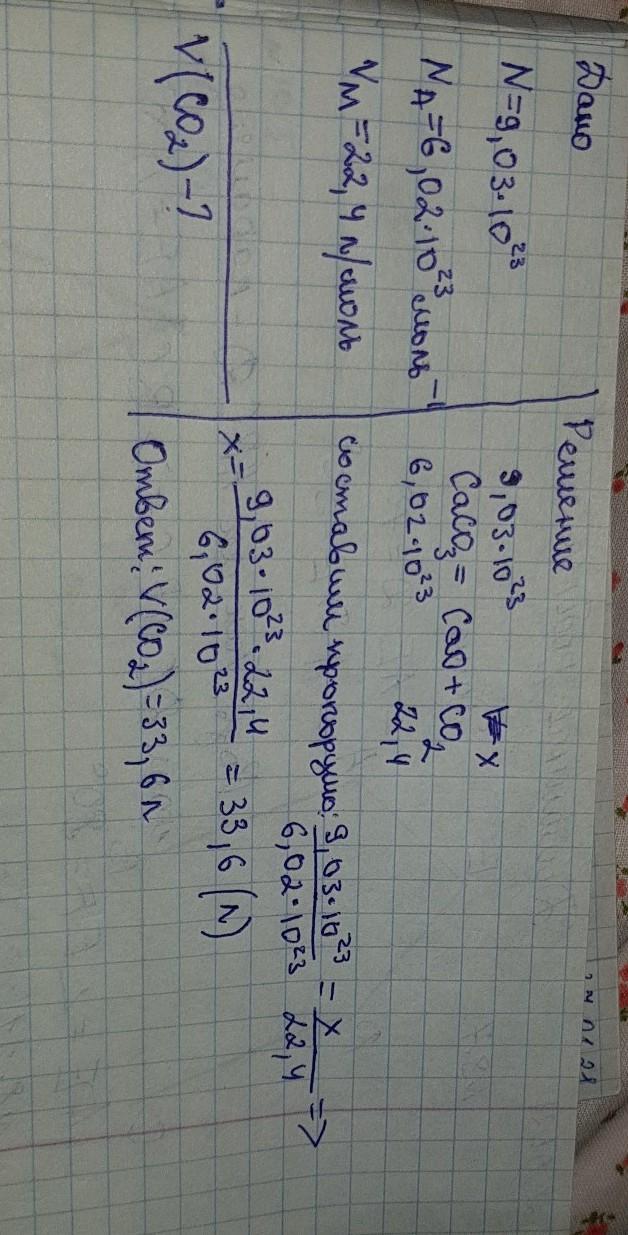 Дано
N=9,03·10²³
N_A=6,02·10²³ моль⁻¹
V_M=22,4 л/моль
V(CO₂)-?
Решение
9,03·10²³ x
CaCO₃ = CaO + CO₂
6,02·10²³ 22,4
составим пропорцию: 9,03·10²³/6,02·10²³ = x/22,4 =>
x= 9,03·10²³·22,4/6,02·10²³ = 33,6 (л)
Ответ: V(CO₂)=33,6 л